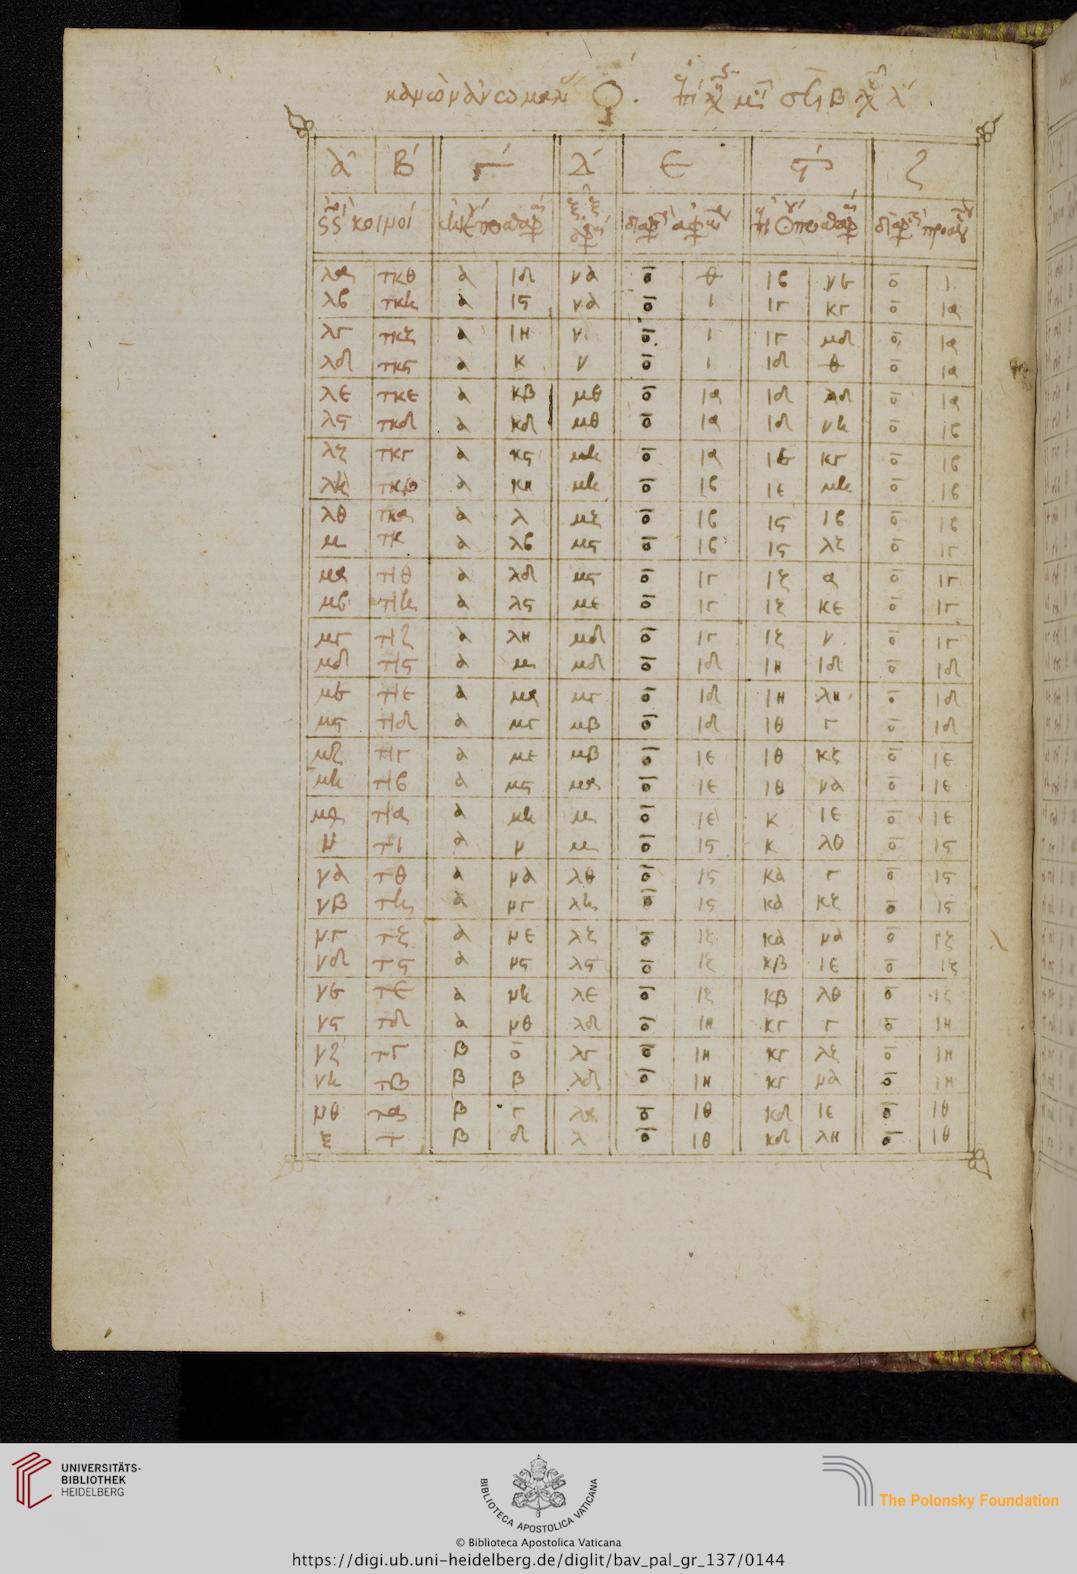 α Β Γ Δ Ε Ϛ Ζ
κοινοί
λα τκθ α ιδ να ο θ ιβ νε ο ι
λβ τκη α ιϛ να ο ι ιγ κγ ο ια
λγ τκζ α ιη ν ο ι ιγ μδ ο ια
λδ τκϛ α κ ν ο ι ιδ θ ο ια
λε τκε α κβ μθ ο ια ιδ λδ ο ια
λϛ τκδ α κδ μθ ο ια ιδ νη ο ιβ
λζ τκγ α κϛ μη ο ια ιε κγ ο ιβ
λη τκβ α κη μη ο ιβ ιε μη ο ιβ
λθ τκα α λ μζ ο ιβ ιϛ ιβ ο ιβ
μ τκ α λβ μϛ ο ιβ ιϛ λζ ο ιγ
μα τιθ α λδ μϛ ο ιγ ιζ α ο ιγ
μβ τιη α λϛ με ο ιγ ιζ κε ο ιγ
μγ τιζ α λη μδ ο ιγ ιζ ν ο ιγ
μδ τιϛ α μ μδ ο ιδ ιη ιδ ο ιδ
με τιε α μα μγ ο ιδ ιη λη ο ιδ
μϛ τιδ α μγ μβ ο ιδ ιθ γ ο ιδ
μζ τιγ α με μβ ο ιε ιθ κζ ο ιε
μη τιβ α μϛ μα ο ιε ιθ να ο ιε
μθ τια α μη μ ο ιε κ ιε ο ιε
ν τι α ν μ ο ιϛ κ λθ ο ιϛ
να τθ α να λθ ο ιϛ κα γ ο ιϛ
νβ τη α νγ λη ο ιϛ κα κζ ο ιϛ
νγ τζ α νε λζ ο ιζ κα να ο ιζ
νδ τϛ α νϛ λϛ ο ιζ κβ ιε ο ιζ
νε τε α νη λε ο ιζ κβ λθ ο ιζ
νϛ τδ α νθ λδ ο ιη κγ γ ο ιη
νζ τγ β ο λγ ο ιη κγ κζ ο ιη
νη τβ β β λβ ο ιη κγ να ο ιη
νθ τα β γ λα ο ιθ κδ ιε ο ιθ
ξ τ β δ λ ο ιθ κδ λη ο ιθ
UNIVERSITÄTS-
BIBLIOTHEK
HEIDELBERG
BIBLIOTECA APOSTOLICA VATICANA
The Polonsky Foundation
© Biblioteca Apostolica Vaticana
https://digi.ub.uni-heidelberg.de/diglit/bav_pal_gr_137/0144